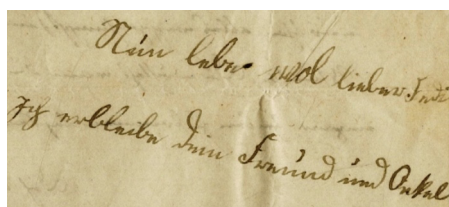 Nun lebe wol lieber Fedi
Ich erbleibe dein Freund und Onkel